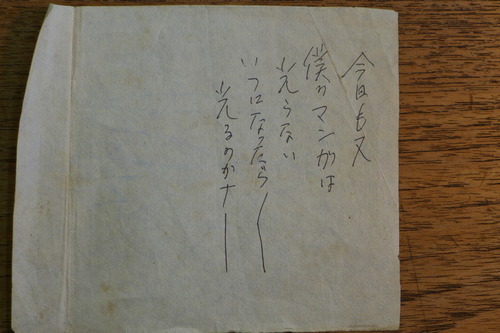 今日も又
僕のマンガは
光らない
いつになったら〜
光るのかナー